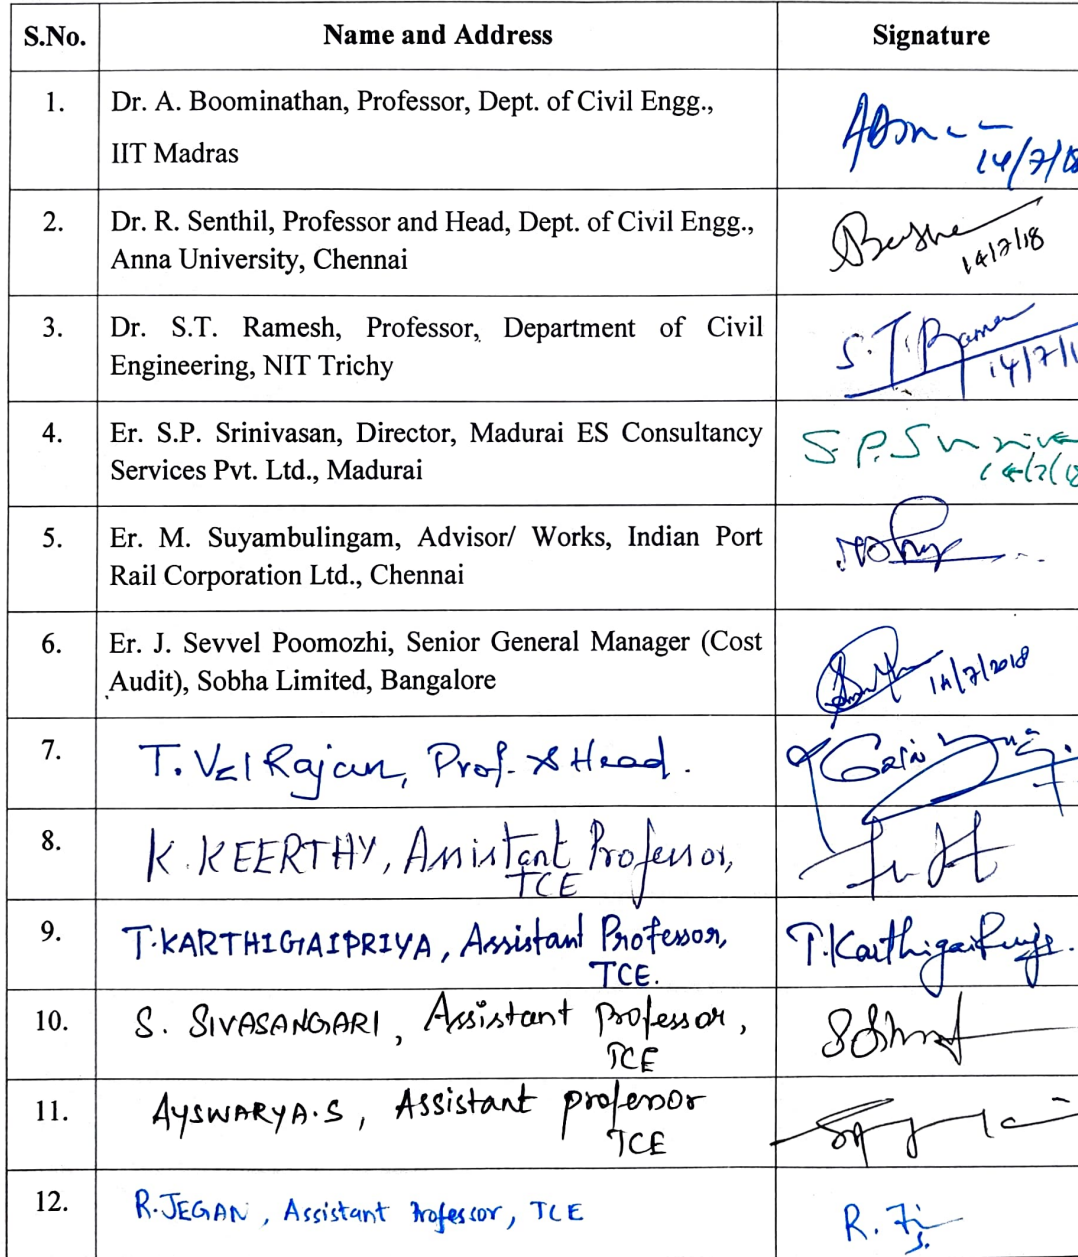 S.No. Name and Address Signature
1. Dr. A. Boominathan, Professor, Dept. of Civil Engg.,
IIT Madras
14/7/18
2. Dr. R. Senthil, Professor and Head, Dept. of Civil Engg.,
Anna University, Chennai
14/7/18
3. Dr. S.T. Ramesh, Professor, Department of Civil
Engineering, NIT Trichy
S.T.
14/7/1
4. Er. S.P. Srinivasan, Director, Madurai ES Consultancy
Services Pvt. Ltd., Madurai
S.P.
5. Er. M. Suyambulingam, Advisor/ Works, Indian Port
Rail Corporation Ltd., Chennai
6. Er. J. Sevvel Poomozhi, Senior General Manager (Cost
Audit), Sobha Limited, Bangalore
14/7/2018
7. T. VelRajan, Prof. & Head.
8. K. KEERTHY, Assistant Professor,
TCE
9. T.KARTHIGAIPRIYA, Assistant Professor,
TCE.
T.Karthigaipriya.
10. S. SIVASANGARI, Assistant Professor,
TCE
11. AYSWARYA.S, Assistant professor
TCE
12. R.JEGAN, Assistant Professor, TCE
R.